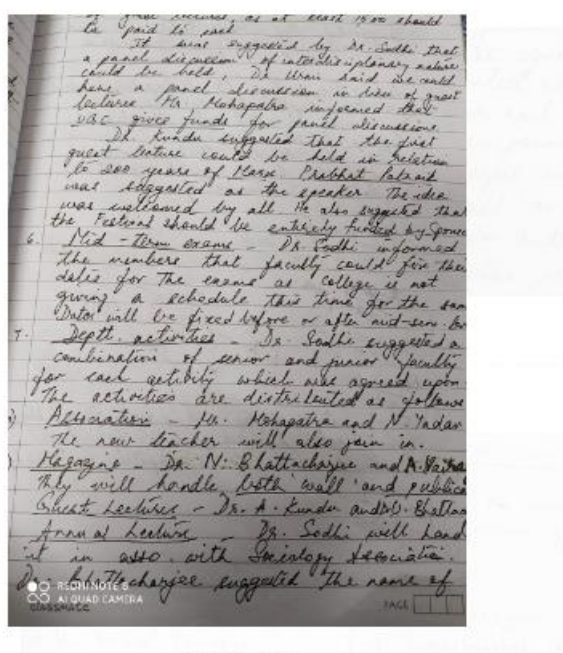 of guest lectures, as at least 1500 should
be paid to each
It was suggested by Dr. Sodhi that
a panel discussion of interdisciplinary nature
could be held, Dr said we could
have a panel discussion in lieu of guest
lectures Mr. Mohapatra informed that
UGC gives funds for panel discussions.
Dr. Kundu suggested that the first
guest lecture could be held in relation
to 200 years of Marx. Prabhat Patnaik
was suggested as the speaker. The idea
was welcomed by all. He also suggested that
the Festival should be entirely funded by
6. Mid-term exams - Dr. Sodhi informed
the members that faculty could fix their
dates for the exams as College is not
giving a schedule this time for the
Dates will be fixed before or after mid-sem
7. Deptt. activities - Dr. Sodhi suggested a
combination of senior and junior faculty
for each activity which was agreed upon
The activities are distributed as follows
Association - Mr. Mohapatra and N. Yadav
The new teacher will also join in.
Magazine - Dr. N. Bhattacharjee and A.
They will handle both wall and
Guest Lectures - Dr. A. Kundu and
Annual Lecture - Dr. Sodhi will
it in asso. with Sociology Association.
Dr. Bhattacharjee suggested the name of
REDMI NOTE 8
AI QUAD CAMERA
classmate
PAGE